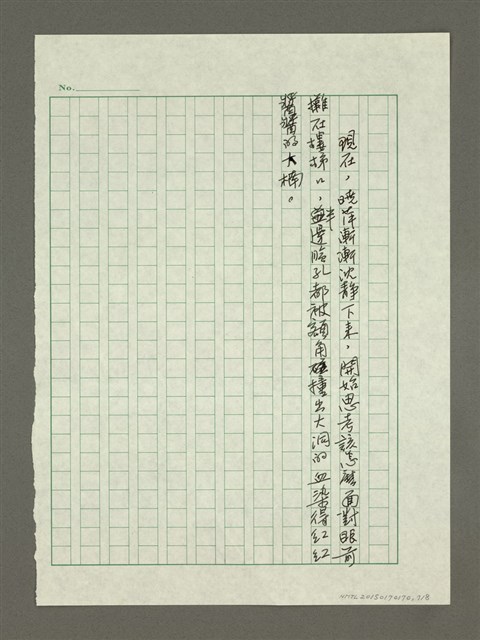 No.
現在，曉萍漸漸沈靜下來，開始思考該怎麼面對眼前
攤在樓梯口，半邊臉孔都被額角碰撞出大洞的血染得紅紅
的大楠。
NMTL20150170170.718